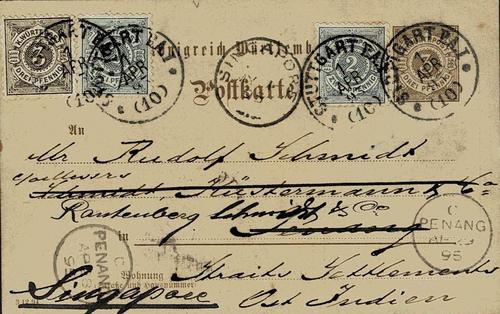 Königreich Württemberg
Postkarte
3
DREI PFENNIG
2
2
3
DREI PFENNIG
STUTTGART
APR
(10)
STUTTGART P.A.I
APR
(10)
SINGAPORE
STUTTGART P.A.I
APR
(10)
STUTTGART P.A.I
APR
(10)
An
Mr Rudolf Schmidt
Schmidt, Küstermann & Co
Rautenberg Schmidt & Co
in Penang
C
PENANG
95
C
PENANG
AP
95
Wohnung
Straße und Hausnummer
Straits Settlements
Singapore Ost Indien
3 12 94